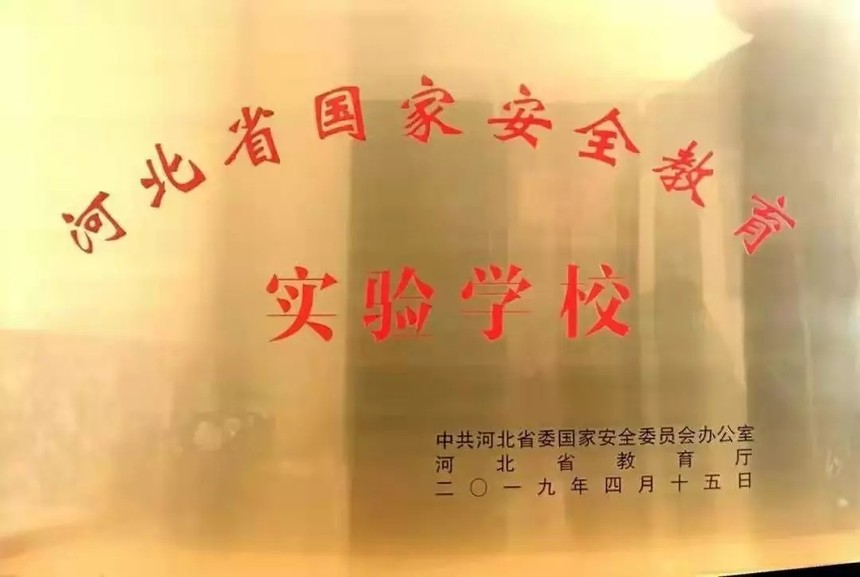 河北省国家安全教育
实验学校
中共河北省委国家安全委员会办公室
河北省教育厅
二〇一九年四月十五日